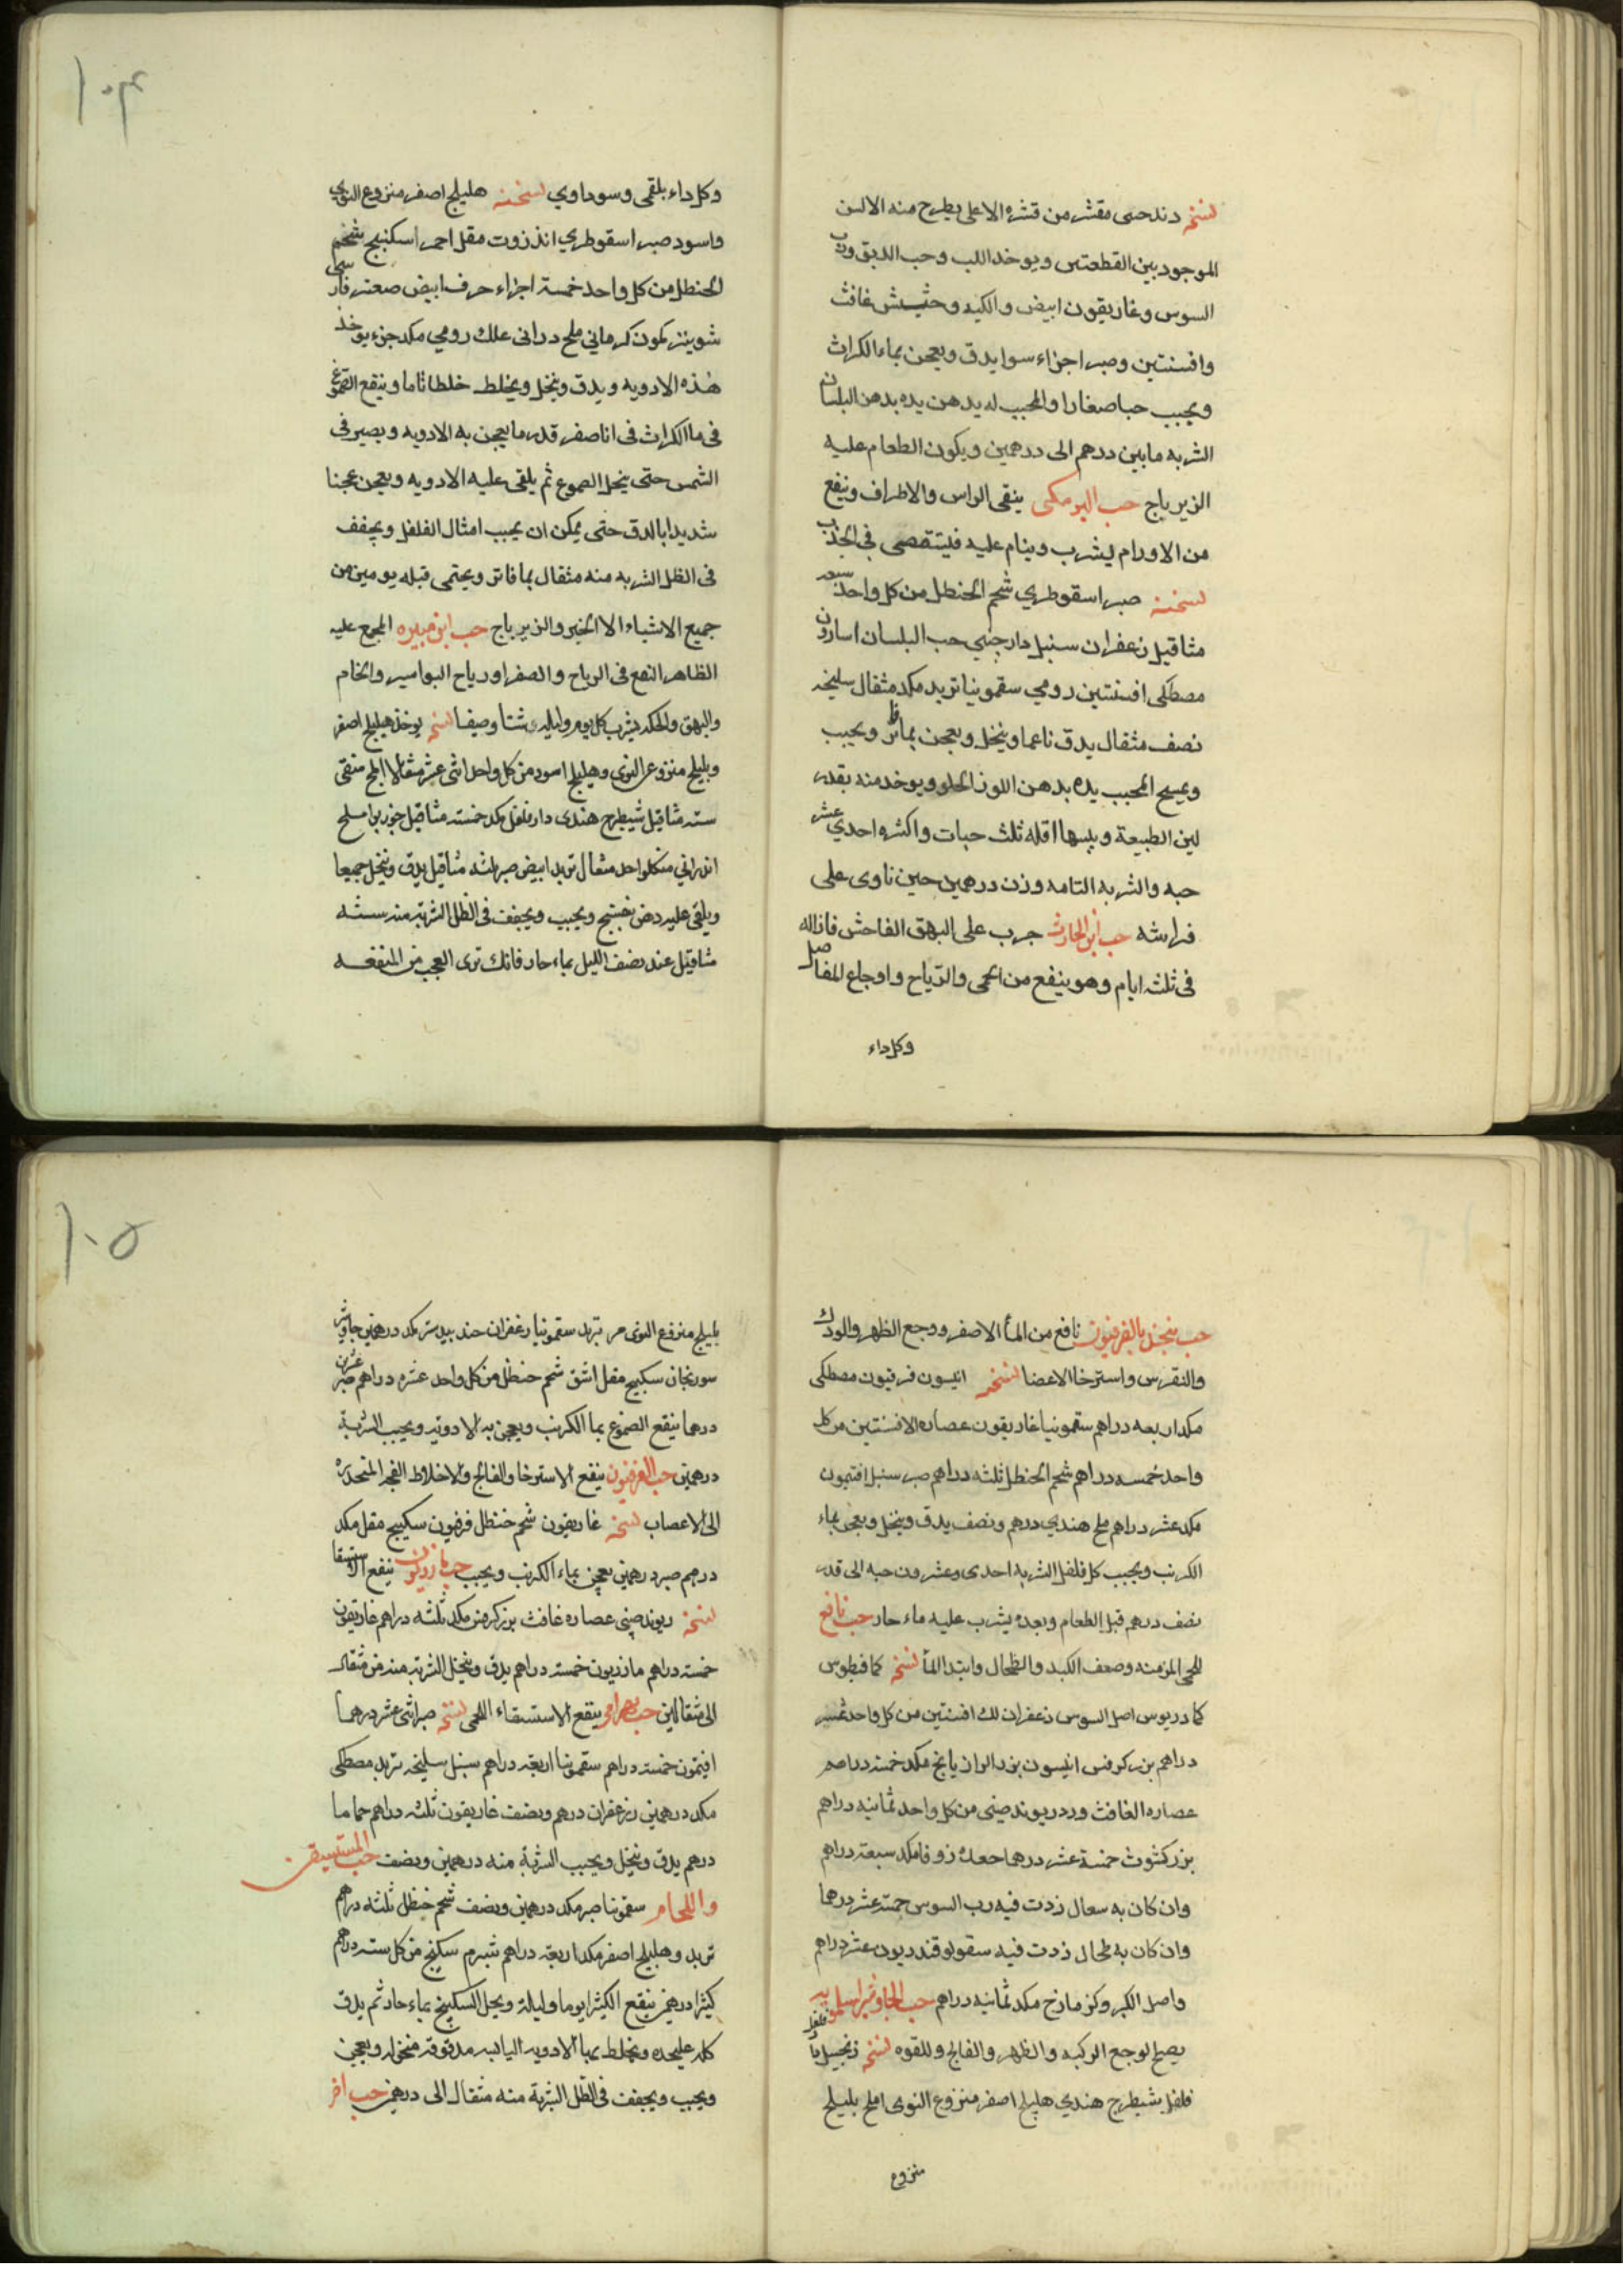 نسخته دند حبى مقشر من قشره الاعلى يطرح منه الالسن
الموجود بين القطعتين ويوخد اللب وحب الدبق ورب
السوس وغاريقون ابيض والكيه وحشيش غافث
وافسنتين وصبر اجزاء سوا يدق ويعجن بماء الكراث
ويحبب حبا صغارا والمحبب له يدهن يده بدهن البلسان
الشربه ما بين درهم الى درهمين ويكون الطعام عليه
الزيرباج حب البرمكى ينقى الراس والاطراف وينفع
من الاورام ليشرب وينام عليه فيستقصى فى الجذب
نسخته صبر اسقوطري شحم الحنطل من كل واحد سبعه
مثاقيل زعفران سنبل دارچيني حب البلسان اسارون
مصطكى افسنتين رومي سقمونيا تربد مكد مثقال سليخه
نصف مثقال يدق ناعما وينخل ويعجن بماء فاتر ويحبب
ويمسح المحبب يده بدهن اللوز الحلو ويوخد منه بقدر
لين الطبيعة ويبسها اقله ثلث حبات واكثره احدي عشر
حبه والشربه التامه وزن درهمين حين تاوى على
فراشه حب ابن الحارث جرب على البهق الفاحش فازاله
فى ثلثه ايام وهو ينفع من الحمى والرياح واوجاع المفاصل
وكل داء
١٠٤
وكل داء بلغمى وسوداوي نسخته هليلج اصفر منزوع النوي
واسود صبر اسقوطري انذزوت مقل احمر اسكنبج شحم
الحنطل من كل واحد خمسة اجزاء حرف ابيض صعتر فارسى
شونيز كمون كرماني ملح دراني علك رومي مكد جزء يوخذ
هذه الادويه ويدق وينخل ويخلط خلطا تاما وينقع الصموغ
فى ما الكراث فى انا صفر قدر ما يعجن به الادويه ويصير فى
الشمس حتى ينحل الصموغ ثم يلقى عليه الادويه ويعجن عجنا
شديدا بالدق حتى يمكن ان يحبب امثال الفلفل ويجفف
فى الظل الشربه منه مثقال بما فاتر ويحتمى قبله يومين من
جميع الاشياء الا الخبز والزيرباج حب ابن هبيره المجمع عليه
الظاهر النفع فى الرياح والصفرا ورياح البواسير والخام
والبهق والحكه يشرب كل يوم وليله شتا وصيفا نسخته يوخذ هليلج اصفر
وبليلج منزوع النوى وهليلج اسود من كل واحد اثنى عشر مثقالا املج منقى
سته مثاقيل شيطرج هندى دارفلفل مكد خمسة مثاقيل جوزبوا ملح
اندراني من كل واحد مثقال تربد ابيض صبر ثلثه مثاقيل يدق وينخل جميعا
ويلقى عليه دهن بنفسج ويحبب ويجفف فى الظل الشربة منه سته
مثاقيل عند نصف الليل بماء حار فانك ترى العجب من المنفعه
حب ينجذل بالفرفيون نافع من الماء الاصفر ووجع الظهر والورك
والنقرس واسترخا الاعضا نسخته انيسون فرفيون مصطكى
مكد اربعه دراهم سقمونيا غاريقون عصاره الافسنتين من كل
واحد خمسه دراهم شحم الحنطل ثلثه دراهم صبر سنبل افتيمون
مكد عشر دراهم ملح هندي درهم ونصف يدق وينخل ويعجن بماء
الكرنب ويحبب كالفلفل الشربه احدى وعشرون حبه الى قدر
نصف درهم قبل الطعام وبعده يشرب عليه ماء حار حب نافع
للحمى المزمنه وضعف الكبد والطحال وابتدا الماء نسخته كمافيطوس
كمادريوس اصل السوس زعفران لك افسنتين من كل واحد عشر
دراهم بزر كرفس انيسون بزر الرازيانج مكد خمسة دراهم
عصاره الغافث ورد ريوند صينى من كل واحد ثمانيه دراهم
بزر كشوث خمسة عشر درهما جعده زوفا مكد سبعة دراهم
وان كان به سعال زدت فيه رب السوس خمسة عشر درهما
وان كان به طحال زدت فيه سقولوقندريون عشر دراهم
واصل الكبر وكزمازج مكد ثمانيه دراهم حب الجاوشير
يصلح لوجع الركبه والظهر والفالج واللقوه نسخته زنجبيل
فلفل شيطرج هندي هليلج اصفر منزوع النوى املج بليلج
منزوع
١٠٥
بليلج منزوع النوى مر تربد سقمونيا زعفران جندبيدستر مكد درهمين جاوشير
سورنجان سكبينج مقل اشق شحم حنظل من كل واحد عشره دراهم صبر عشرين
درهما ينقع الصموغ بما الكرنب ويعجن به الادويه ويحبب الشربة
درهمين حب الفرفيون ينفع الاسترخا والفالج والاخلاط الفجه المنحدره
الى الاعصاب نسخته غاريقون شحم حنظل فرفيون سكبينج مقل مكد
درهم صبر درهمين يعجن بماء الكرنب ويحبب حب مازريون ينفع الاستسقا
نسخته ريوند صيني عصاره غافث بزر كرفس مكد ثلثه دراهم غاريقون
خمسة دراهم مازريون خمسة دراهم يدق وينخل الشربة منه من مثقال
الى مثقالين حب بهرامى ينفع الاستسقاء اللحمى نسخته صبر اثنى عشر درهما
افتيمون خمسة دراهم سقمونيا اربعة دراهم سنبل سليخه تربد مصطكى
مكد درهمين زعفران درهم ونصف غاريقون ثلثه دراهم حماما
درهم يدق وينخل ويحبب الشربة منه درهمين ونصف حب المستسقين
واللحام سقمونيا صبر مكد درهمين ونصف شحم حنظل ثلثه دراهم
تربد وهليلج اصفر مكد اربعة دراهم شبرم سكبينج من كل سته دراهم
كثيرا درهمين ينقع الكثيرا يوما وليلة ويحل السكبينج بماء حار ثم يدق
كل عليحده ويخلط بماء الادويه اليابسه مدقوقة منخوله ويعجن
ويحبب ويجفف فى الظل الشربة منه مثقال الى درهمين حب اخر